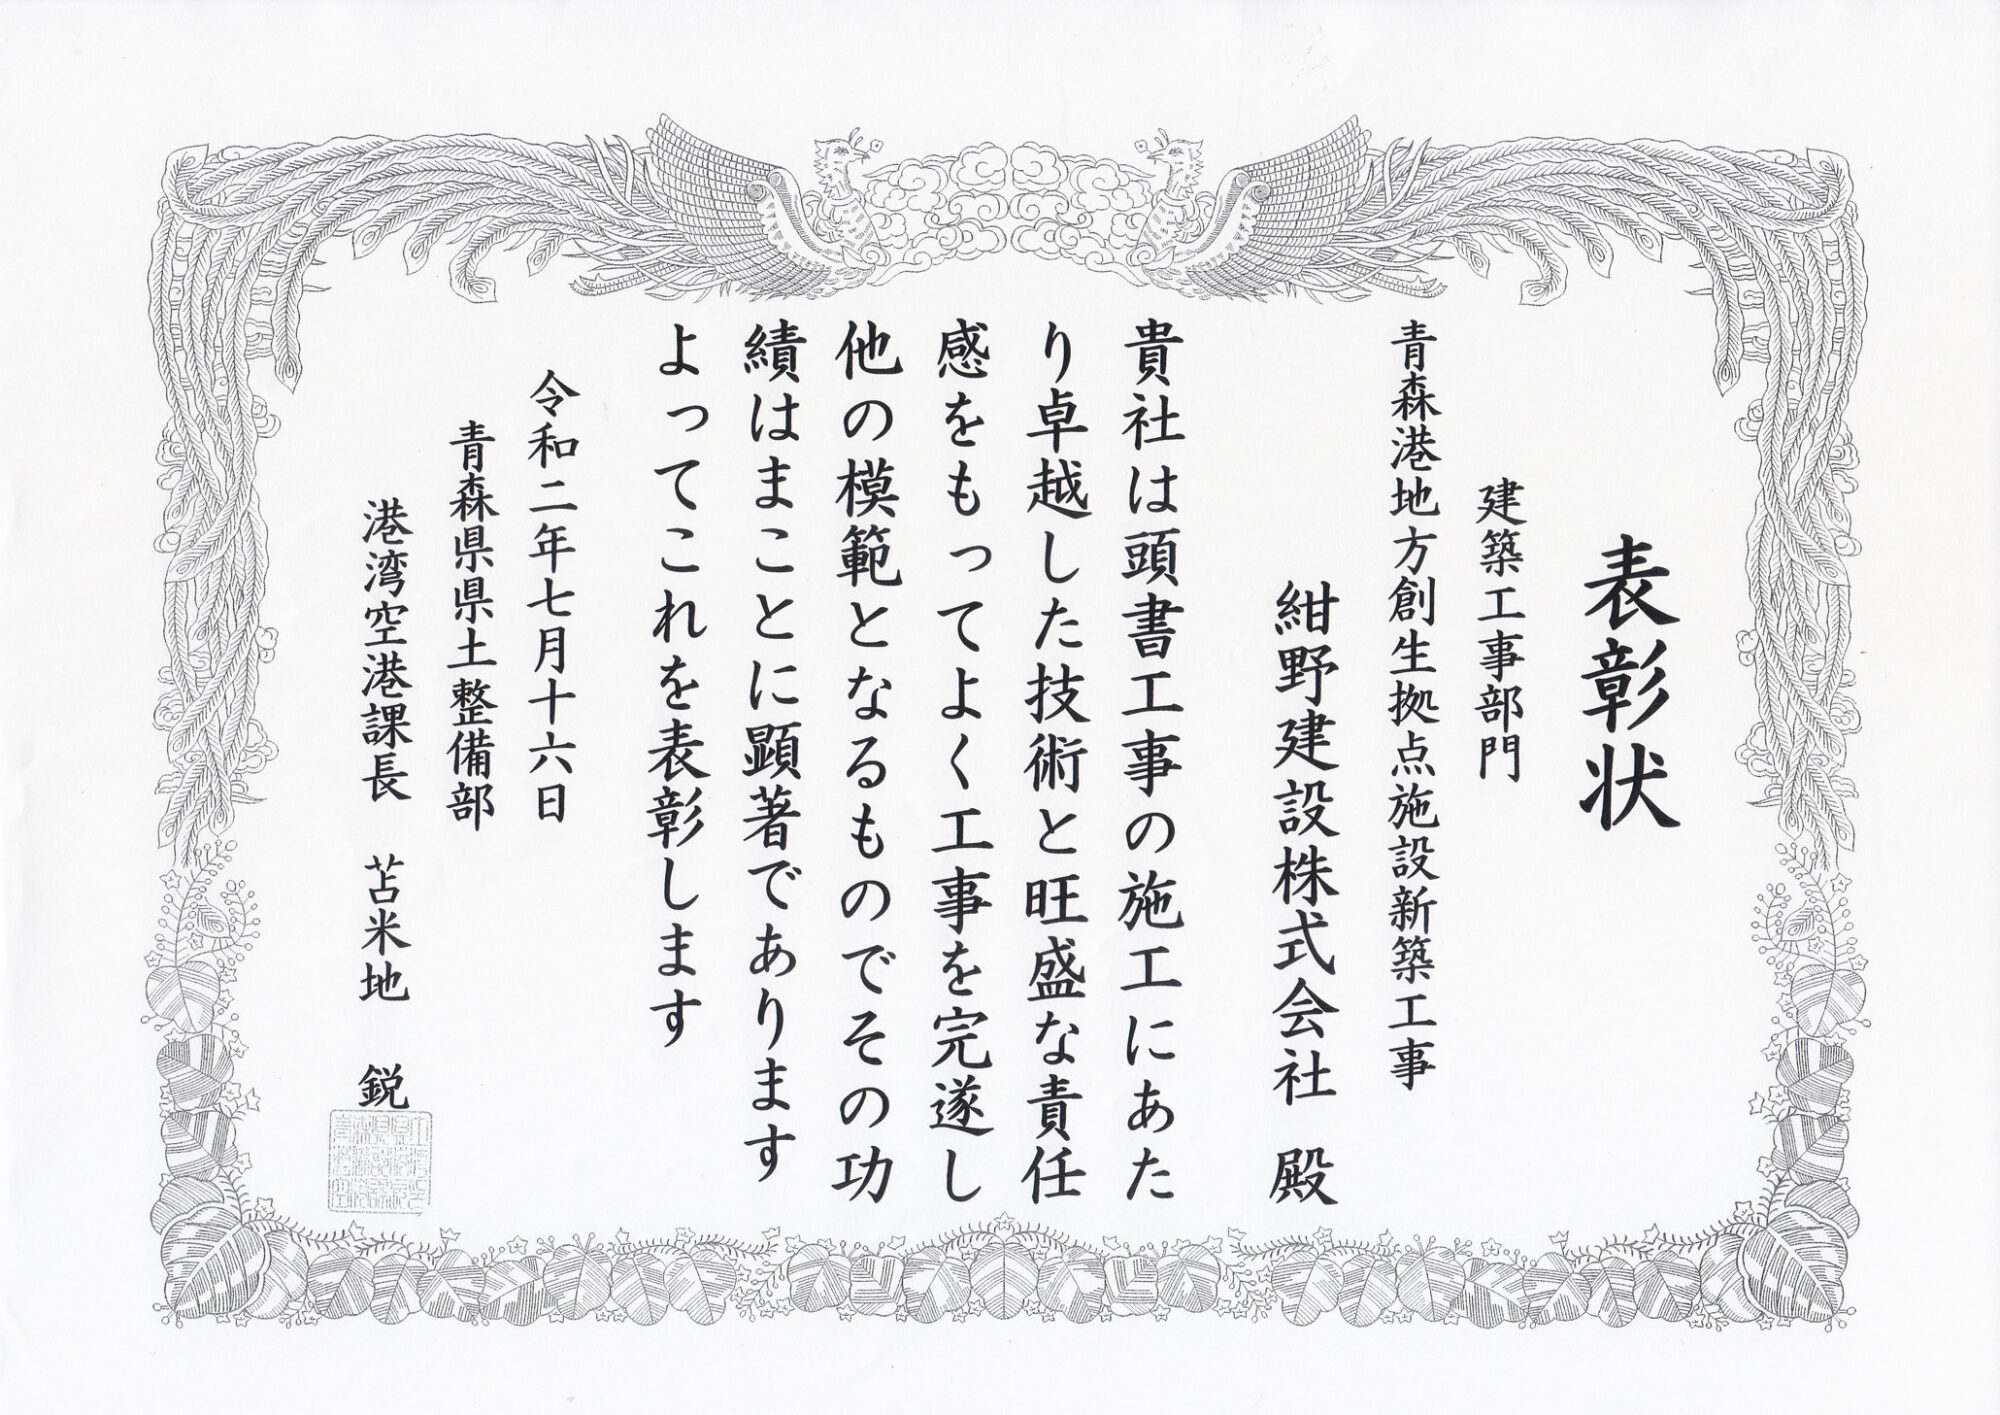 表彰状
建築工事部門
青森港地方創生拠点施設新築工事
紺野建設株式会社 殿
貴社は頭書工事の施工にあた
り卓越した技術と旺盛な責任
感をもってよく工事を完遂し
他の模範となるものでその功
績はまことに顕著であります
よってこれを表彰します
令和二年七月十六日
青森県県土整備部
港湾空港課長 苫米地 鋭